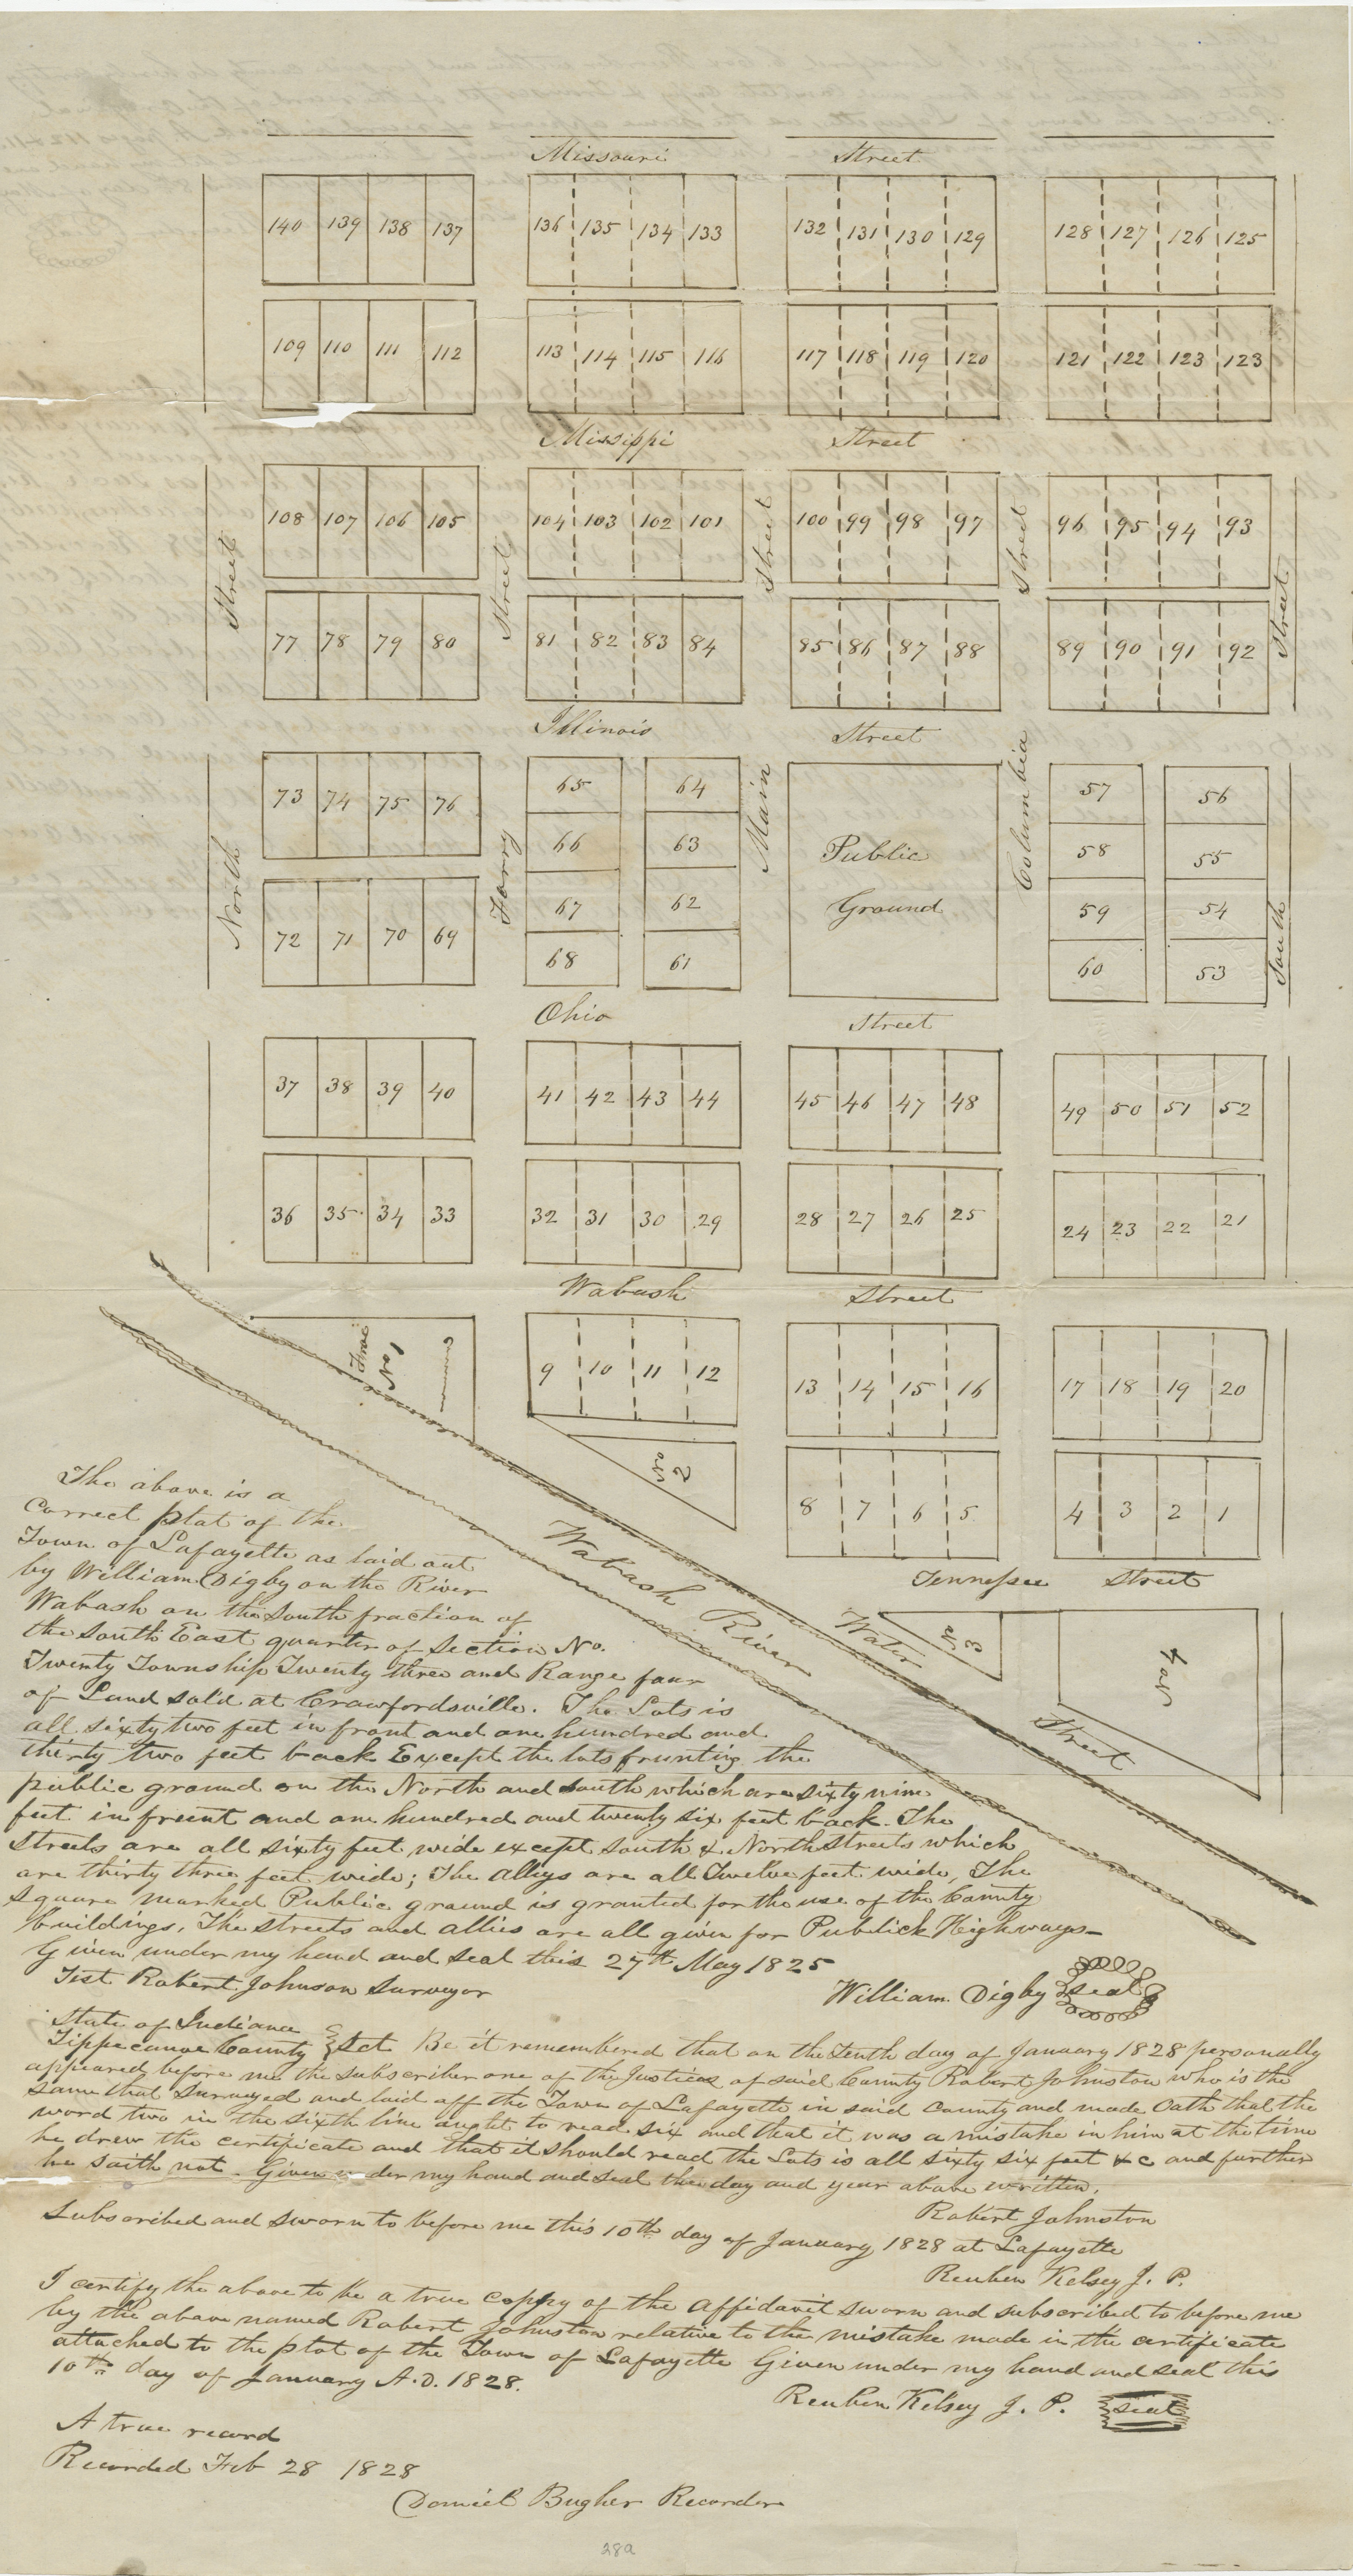 Missouri Street
140 139 138 137 136 135 134 133 132 131 130 129 128 127 126 125
109 110 111 112 113 114 115 116 117 118 119 120 121 122 123 123
Missippi Street
108 107 106 105 104 103 102 101 100 99 98 97 96 95 94 93
77 78 79 80 81 82 83 84 85 86 87 88 89 90 91 92
North Street
Ferry Street
Main Street
Columbia Street
South Street
Illinois Street
73 74 75 76 65 64 57 56
66 63 Public 58 55
72 71 70 69 67 62 Ground 59 54
68 61 60 53
Ohio Street
37 38 39 40 41 42 43 44 45 46 47 48 49 50 51 52
36 35 34 33 32 31 30 29 28 27 26 25 24 23 22 21
Wabash Street
Frac
No 1
9 10 11 12 13 14 15 16 17 18 19 20
No
2
8 7 6 5 4 3 2 1
Tennessee Street
Wabash River
Water Street
3
No 4
The above is a
Correct plat of the
Town of Lafayette as laid out
by William Digby on the River
Wabash on the South fraction of
the South East quarter of Section No.
Twenty Township Twenty three and Range four
of Land sold at Crawfordsville. The Lots is
all sixty two feet in front and one hundred and
thirty two feet back Except the lots frunting the
public ground on the North and South which are sixty nine
feet in freent and one hundred and twenty six feet back. The
Streets are all sixty feet wide except South & North Streets which
are thirty three feet wide; The alleys are all Twelve feet wide, The
Square marked Public ground is granted for the use of the County
buildings. The streets and allies are all given for Publick Highways
Given under my hand and seal this 27th May 1825
Test Robert Johnson Surveyor
William Digby seal
State of Indiana
Tippecanoe County Sct. Be it remembered that on the tenth day of January 1828 personally
appeared before me the subscriber one of the Justices of said County Robert Johnston who is the
same that surveyed and laid off the Town of Lafayette in said County and made Oath that the
word two in the sixth line aught to read six and that it was a mistake in him at the time
he drew the certificate and that it should read the Lots is all sixty six feet &c and further
he saith not. Given under my hand and seal the day and year above written.
Robert Johnston
Subscribed and sworn to before me this 10th day of January 1828 at Lafayette
Reuben Kelsey J. P.
I certify the above to be a true coppy of the affidavit sworn and subscribed to before me
by the above named Robert Johnston relative to the mistake made in the certificate
attached to the plot of the Town of Lafayette Given under my hand and seal this
10th day of January A.D. 1828.
Reuben Kelsey J. P. seal
A true record
Recorded Feb 28 1828
Daniel Bugher Recorder
289